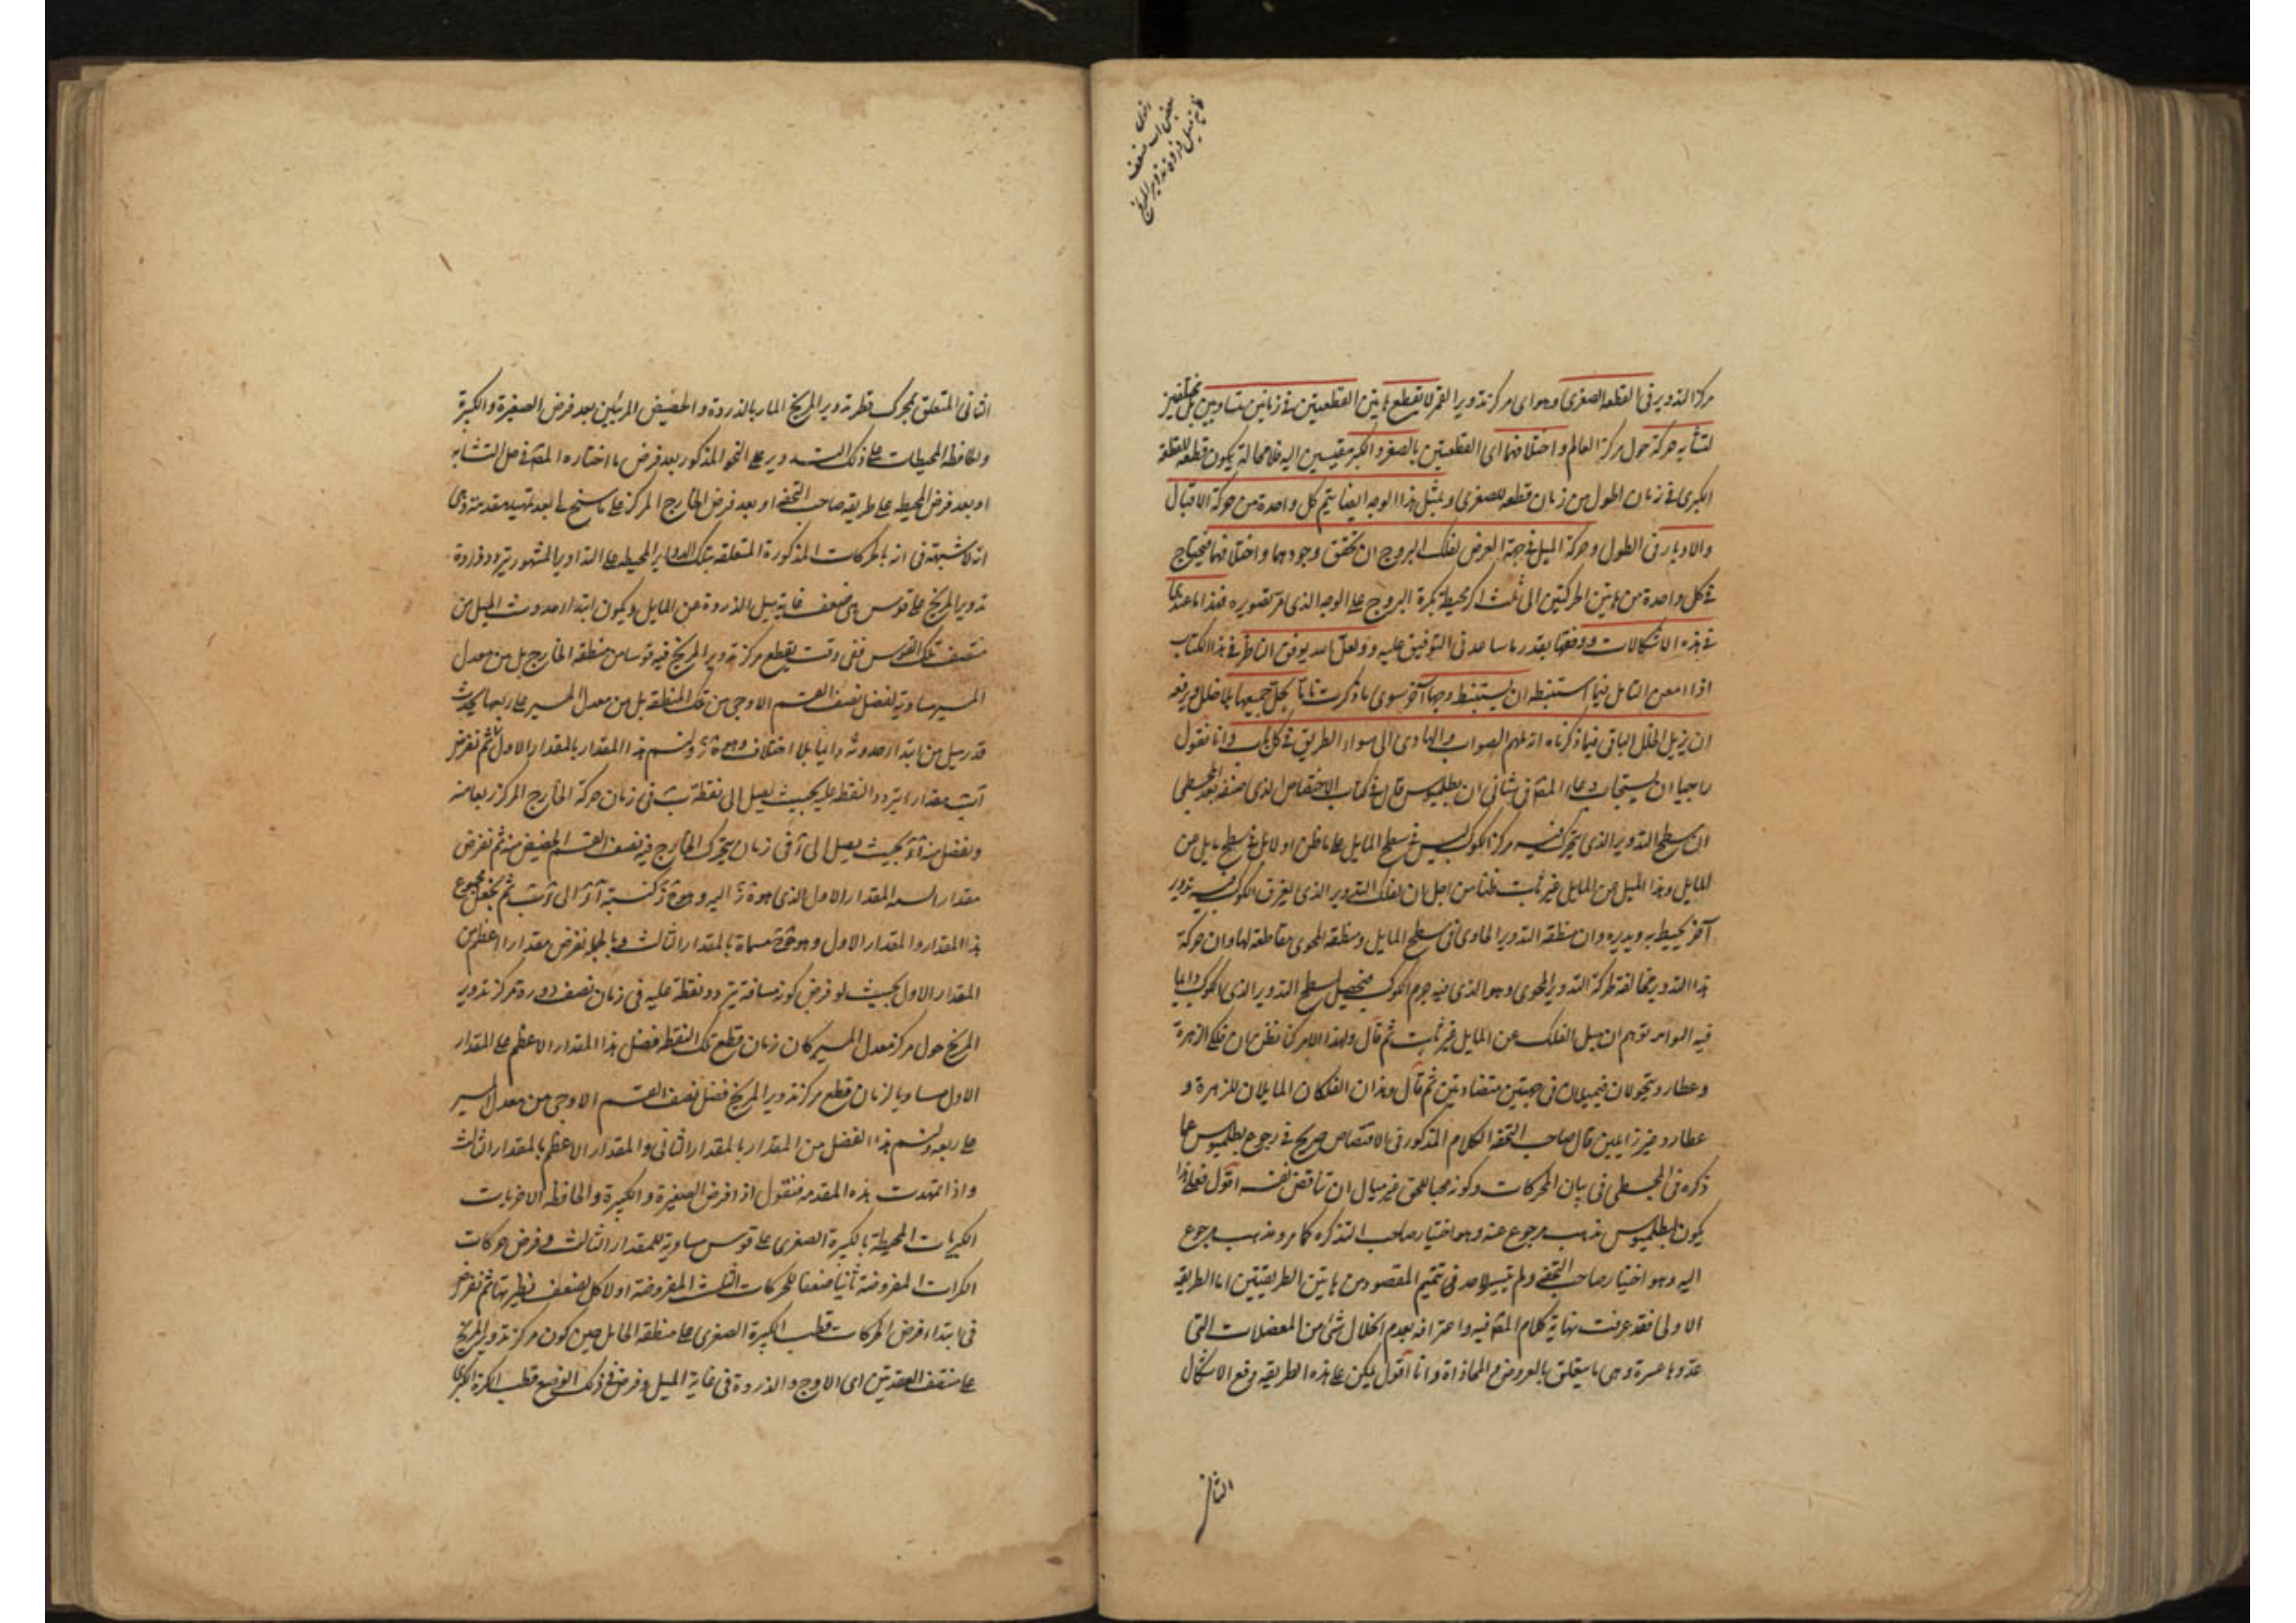 مركز التدوير فى القطعة الصغرى وهو اى مركز تدوير القمر لا يقطع هاتين القطعتين فى زمانين متساويين بل مختلفين
لتشابه حركته حول مركز العالم واختلافهما اى القطعتين بالصغر والكبر مقيسين اليه فلا محالة يكون قطعه للقطعة
الكبرى فى زمان اطول من زمان قطعه للصغرى وبمثل هذا الوجه ايضا يتم كل واحدة من حركة الاقبال
والادبار فى الطول وحركة الميل فى جهة العرض لفلك البروج ان تحقق وجودهما واختلافهما فيحتاج
فى كل واحدة من هاتين الحركتين الى ثلث اكر محيطة بكرة البروج على الوجه الذى مر تصويره فهذا ما عندنا
فى هذه الاشكالات ودفعها بقدر ما ساعدنى التوفيق عليه ولعل الله يوفق الناظر فى هذا الكتاب
اذا امعن التامل فيما استنبطه ان يستنبط وجها آخر سوى ما ذكرت ينحل جميعها بلا خلل ويرفعه
ان يزيل الخلل الباقى فيما ذكرناه انه ملهم الصواب والهادى الى سواء الطريق فى كل باب وانا نقول
راجيا ان يستجاب دعاء المص فى شانى ان بطلميوس قال فى كتاب الاقتصاص الذى صنفه بعد المجسطى
ان سطح التدوير الذى يتحرك فيه مركز الكوكب ليس فى سطح المايل على ما ظن اولا بل فى سطح مايل عن
المايل وهذا الميل عن المايل غير ثابت ظنا من اجل ان لفلك التدوير الذى يعرف الكوكب فيه تدوير
آخر يحيط به ويديره وان منطقة التدوير الحاوى فى سطح المايل ومنطقة المحوى مقاطعة لها وان حركة
هذا التدوير مخالفة لحركة التدوير المحوى وهو الذى فيه جرم الكوكب فيحصل لسطح التدوير الذى الكوكب دايما
فيه التوامه توهم ان ميل الفلك عن المايل غير ثابت ثم قال ولهذا الامر كنا نظن ان فلكى الزهرة
وعطارد يتحولان فيميلان فى جهتين متضادتين ثم قال وهذان الفلكان المايلان للزهرة و
عطارد غير زايلين قال صاحب التحفة الكلام المذكور فى الاقتصاص صريح فى رجوع بطلميوس عما
ذكره فى المجسطى فى بيان المحركات وكونه محبا للحق غير مبال ان يناقض نفسه اقول فعلى هذا
يكون لبطلميوس مذهب مرجوع عنه وهو اختيار صاحب التذكره كما مر ومذهب مرجوع
اليه وهو اختيار صاحب التحفه ولم يتيسر لاحد فى تتميم المقصود من هاتين الطريقتين اما الطريقة
الاولى فقد عرفت نهاية كلام المص فيه واعترافه بعدم انحلال شئ من المعضلات التى
عدوها عسرة وهى ما يتعلق بالعروض والمحاذاة وانا اقول يمكن على هذه الطريقه دفع الاشكال
الثانى
الثانى المتعلق بمحرك قطر تدوير المريخ المار بالذروة والحضيض المرئيين بعد فرض الصغيرة والكبيرة
والحافظة المحيطات على ذلك التدوير على النحو المذكور بعد فرض ما اختاره المص فى حل التشابه
او بعد فرض المحيطه على طريقه صاحب التحفه او بعد فرض الخارج المركز على ما سنح لى بعد تمهيد مقدمة وهى
انه لا شبهة فى انه بالحركات المذكورة المتعلقه بتلك الدواير المحيطه على التداوير المشهور يتردد ذروة
تدوير المريخ على قوس هى ضعف غاية ميل الذروة عن المايل ويكون ابتداء حدوث الميل من
منتصف تلك القوس ففى وقت يقطع مركز تدوير المريخ فيه قوسا من منطقة الخارج بل من معدل
المسير مساوية لفضل نصف القسم الاوجى من تلك المنطقة بل من معدل المسير على ربعها يحدث
قدر ميل من ابتداء حدوثه دايما بلا اختلاف وهو ة ز ولنسم هذا المقدار بالمقدار الاول ثم نفرض
آب مقدارا يتردد النقطة عليه بحيث يصل الى نقطة ب فى زمان حركة الخارج المركز ربعا منه
ونفصل منه آ ز بحيث يصل الى ز فى زمان يتحرك الخارج فيه نصف القسم الحضيض منه ثم نفرض
مقدارا نسبة المقدار الاول الذى هو ة ز اليه وهو ح ز كنسبة آ ز الى ز ب ثم نجعل مجموع
هذا المقدار والمقدار الاول وهو ح ة مسماة بالمقدار الثالث وبالجملة نفرض مقدارا اعظم من
المقدار الاول بحيث لو فرض كونه مسافة يتردد نقطة عليه فى زمان نصف دورة مركز تدوير
المريخ حول مركز معدل المسير كان زمان قطع تلك النقطة فضل هذا المقدار الاعظم على المقدار
الاول مساويا لزمان قطع مركز تدوير المريخ فضل نصف القسم الاوجى من معدل المسير
على ربعه ولنسم هذا الفضل من المقدار بالمقدار الثانى والمقدار الاعظم بالمقدار الثالث
واذا تمهدت هذه المقدمه فنقول اذا فرض الصغيرة والكبيرة والحافظة الاخريات
الكريات المحيطة بالكبيرة الصغرى على قوس مساوية للمقدار الثالث وفرض حركات
الكرات المفروضة ثانيا ضعفا لحركات الثلث المفروضة اولا كل لضعف نظيرتها ثم نفرض
فى ابتداء فرض الحركات قطب الكبيرة الصغرى على منطقة الحامل حين كون مركز تدوير المريخ
على منتصف العقدتين اى الاوج والذروة فى غاية الميل وفرض فى ذلك الوضع قطب الكرة الكبرى